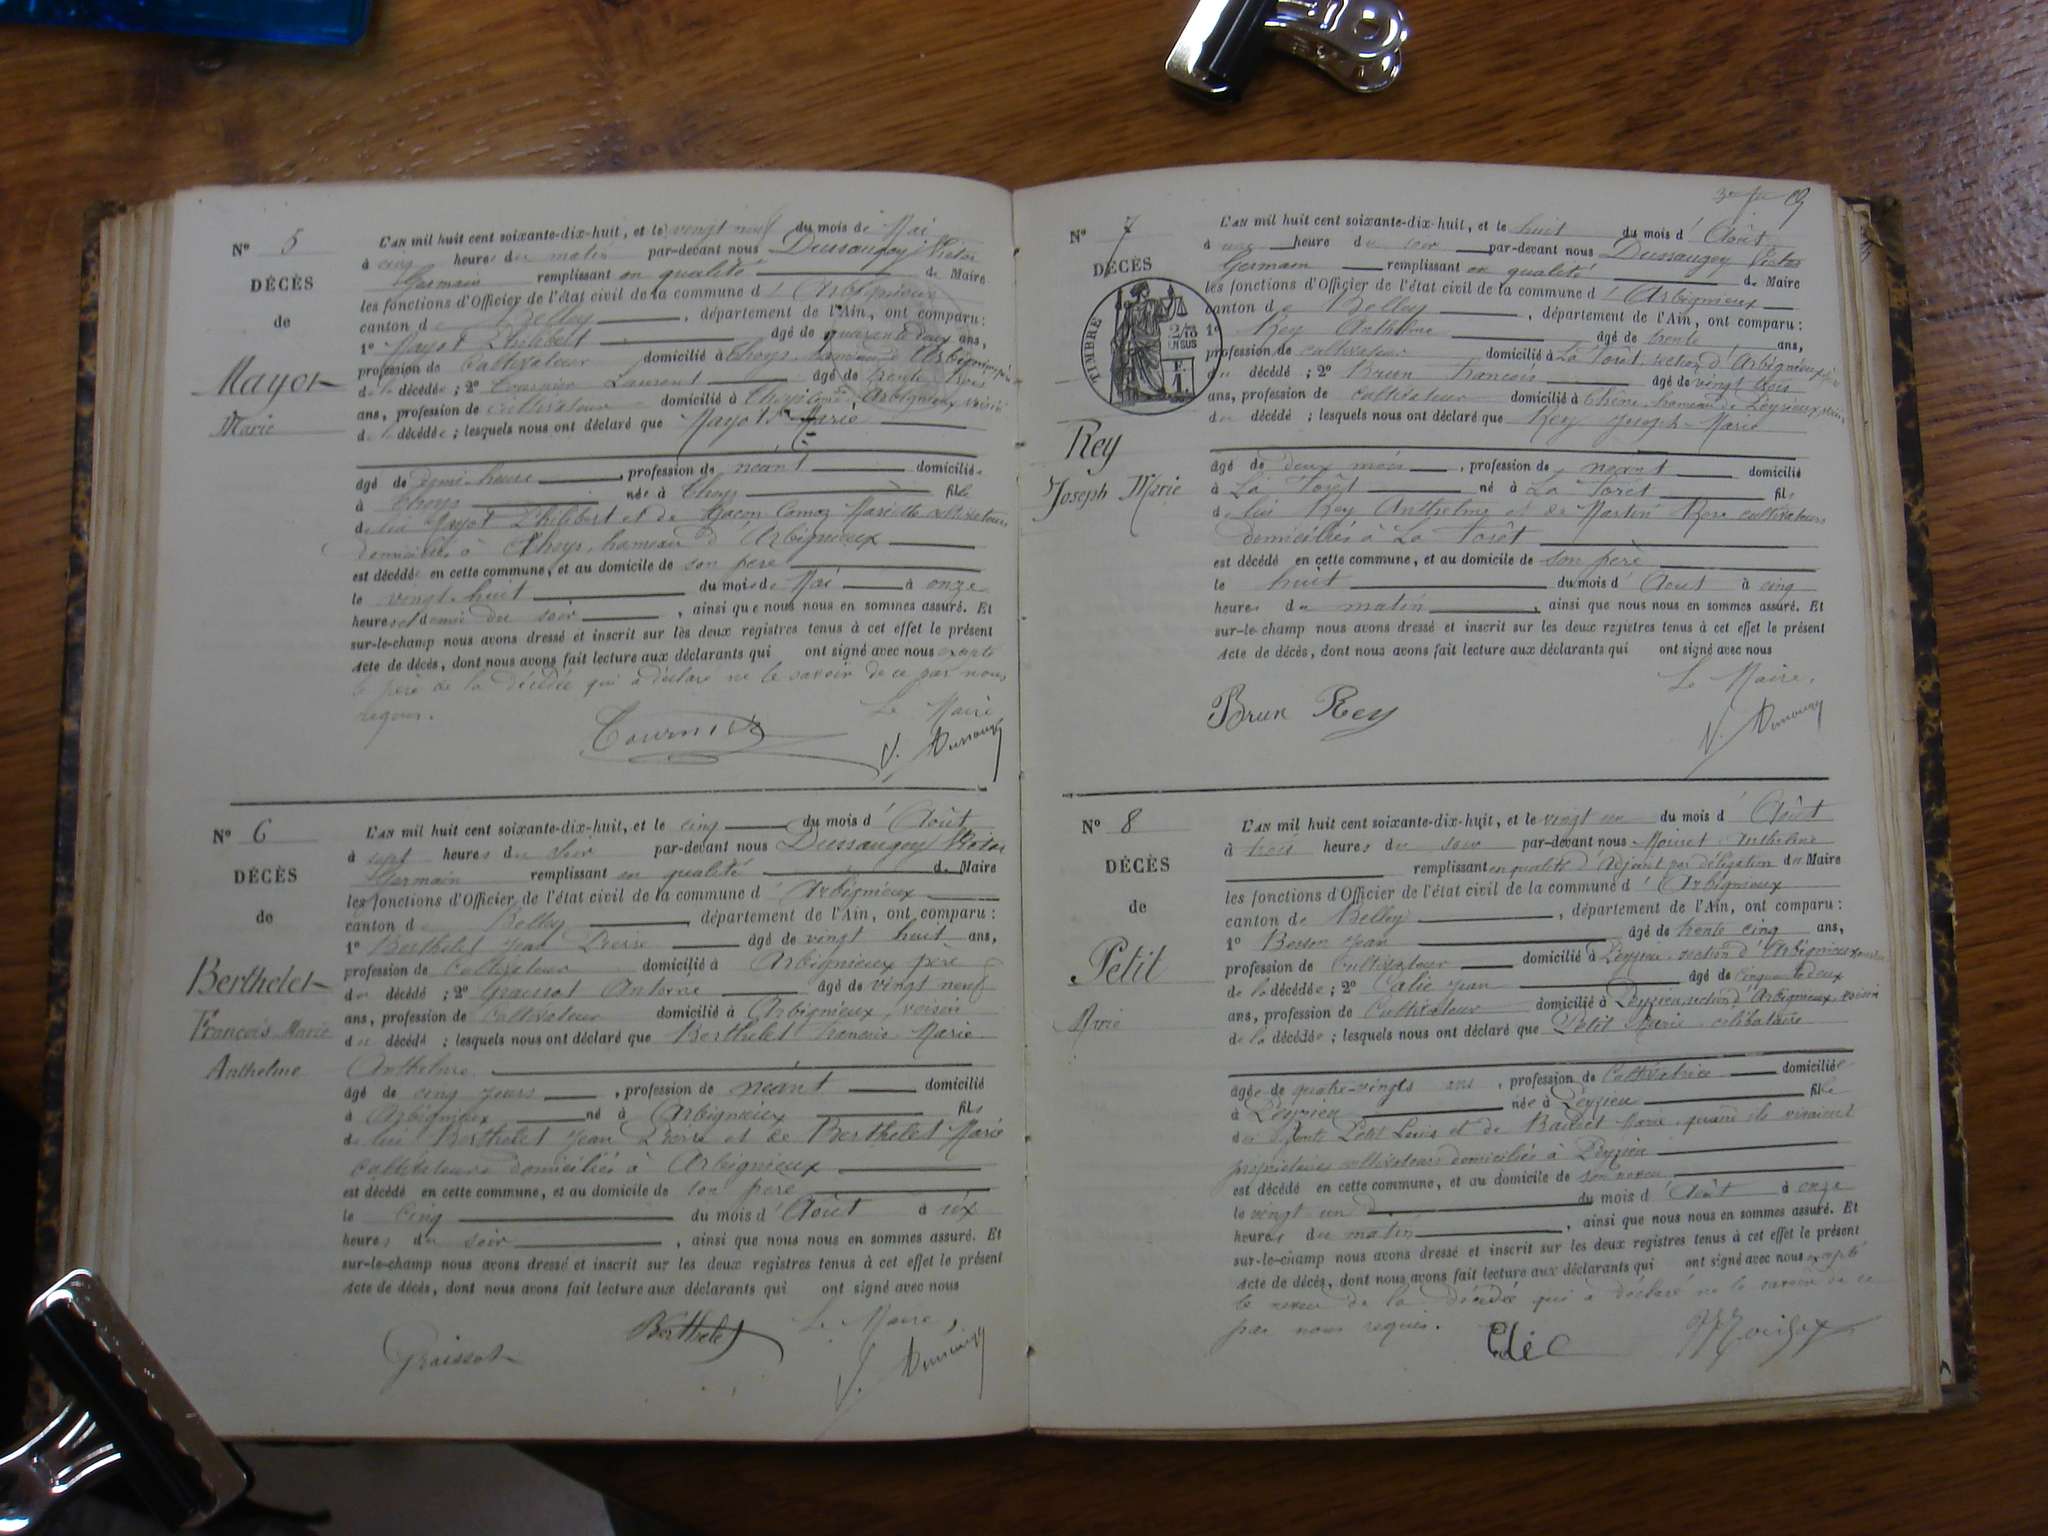 N° 5
DÉCÈS
de
Mayot
Marie
L'AN mil huit cent soixante-dix-huit, et le vingt neuf du mois de Mai
à cinq heures du matin par-devant nous Dussaugey Victor
Germain remplissant en qualité de Maire
les fonctions d'Officier de l'état civil de la commune d'Arbignieux
canton de Belley, département de l'Ain, ont comparu:
1° Mayot Philibert âgé de quarante deux ans,
profession de Cultivateur domicilié à Thoys, hameau d'Arbignieux, père
de la décédée; 2° Tournier Laurent âgé de trente trois
ans, profession de cultivateur domicilié à Thoys, Arbignieux, voisin
de la décédée; lesquels nous ont déclaré que Mayot Marie
âgé de demi-heure, profession de néant domiciliée
à Thoys née à Thoys fille
de lui Mayot Philibert et de Marie cultivateurs
domiciliés à Thoys, hameau d'Arbignieux
est décédée en cette commune, et au domicile de son père
le vingt-huit du mois de Mai à onze
heures et demie du soir, ainsi que nous nous en sommes assuré. Et
sur-le-champ nous avons dressé et inscrit sur les deux registres tenus à cet effet le présent
Acte de décès, dont nous avons fait lecture aux déclarants qui ont signé avec nous excepté
le père de la décédée qui a déclaré ne le savoir de ce par nous
requis.
Le Maire
Tournier
V. Dussaugey
N° 6
DÉCÈS
de
Berthelet
François Marie
Anthelme
L'AN mil huit cent soixante-dix-huit, et le cinq du mois d'Août
à sept heures du soir par-devant nous Dussaugey Victor
Germain remplissant en qualité de Maire
les fonctions d'Officier de l'état civil de la commune d'Arbignieux
canton de Belley, département de l'Ain, ont comparu:
1° Berthelet Jean Pierre âgé de vingt huit ans,
profession de Cultivateur domicilié à Arbignieux père
du décédé; 2° Graissot Antoine âgé de vingt neuf
ans, profession de Cultivateur domicilié à Arbignieux, voisin
du décédé; lesquels nous ont déclaré que Berthelet François Marie
Anthelme
âgé de cinq jours, profession de néant domicilié
à Arbignieux né à Arbignieux fils
de lui Berthelet Jean Pierre et de Berthelet Marie
Cultivateurs domiciliés à Arbignieux
est décédé en cette commune, et au domicile de son père
le Cinq du mois d'Août à six
heures du soir, ainsi que nous nous en sommes assuré. Et
sur-le-champ nous avons dressé et inscrit sur les deux registres tenus à cet effet le présent
Acte de décès, dont nous avons fait lecture aux déclarants qui ont signé avec nous
Le Maire,
Graissot
Berthelet
V. Dussaugey
N° 7
DÉCÈS
TIMBRE
2/10
EN SUS
F.
1.
Rey
Joseph Marie
L'AN mil huit cent soixante-dix-huit, et le huit du mois d'Août
à une heure du soir par-devant nous Dussaugey Victor
Germain remplissant en qualité de Maire
les fonctions d'Officier de l'état civil de la commune d'Arbignieux
canton de Belley, département de l'Ain, ont comparu:
1° Rey Anthelme âgé de trente ans,
profession de cultivateur domicilié à La Forêt, section d'Arbignieux père
du décédé; 2° Brun François âgé de vingt trois
ans, profession de cultivateur domicilié à hameau de Peyzieux, voisin
du décédé; lesquels nous ont déclaré que Rey Joseph-Marie
âgé de deux mois, profession de néant domicilié
à La Forêt né à La Forêt fils
de lui Rey Anthelme et de Martin Rose cultivateurs
domiciliés à La Forêt
est décédé en cette commune, et au domicile de son père
le huit du mois d'Août à cinq
heures du matin, ainsi que nous nous en sommes assuré. Et
sur-le-champ nous avons dressé et inscrit sur les deux registres tenus à cet effet le présent
Acte de décès, dont nous avons fait lecture aux déclarants qui ont signé avec nous
Le Maire,
Brun Rey
V. Dussaugey
N° 8
DÉCÈS
de
Petit
Marie
L'AN mil huit cent soixante-dix-huit, et le vingt un du mois d'Août
à trois heures du soir par-devant nous Anthelme
remplissant en qualité d'Adjoint par délégation du Maire
les fonctions d'Officier de l'état civil de la commune d'Arbignieux
canton de Belley, département de l'Ain, ont comparu:
1° Besson Jean âgé de trente cinq ans,
profession de Cultivateur domicilié à Peyzieu, section d'Arbignieux, neveu
de la décédée; 2° Jean âgé de cinquante deux
ans, profession de Cultivateur domicilié à Peyzieu, section d'Arbignieux, voisin
de la décédée; lesquels nous ont déclaré que Petit Marie célibataire
âgée de quatre-vingts ans, profession de Cultivatrice domiciliée
à Peyzieu née à Peyzieu fille
de défunts Petit Louis et de Marie, quand ils vivaient
propriétaires cultivateurs domiciliés à Peyzieu
est décédé en cette commune, et au domicile de son neveu
le vingt un du mois d'Août à onze
heures du matin, ainsi que nous nous en sommes assuré. Et
sur-le-champ nous avons dressé et inscrit sur les deux registres tenus à cet effet le présent
Acte de décès, dont nous avons fait lecture aux déclarants qui ont signé avec nous excepté
le neveu de la décédée qui a déclaré ne le savoir de ce
par nous requis.